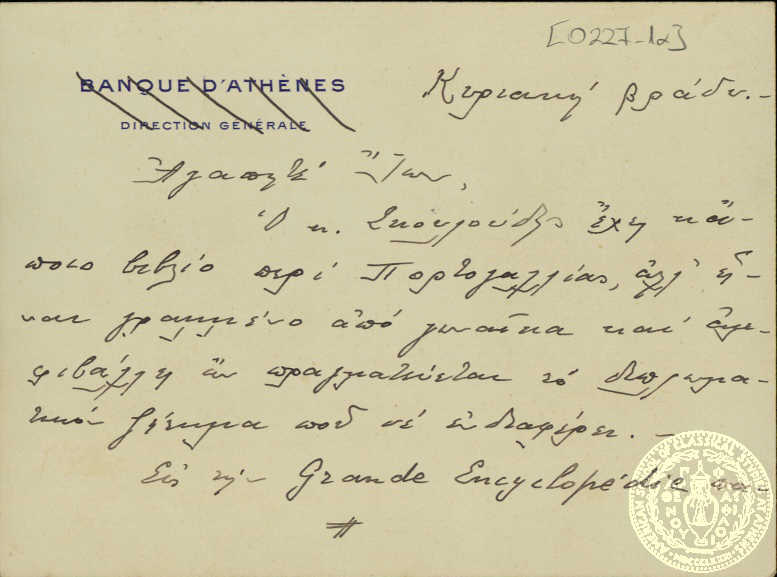 [0227-1α]
BANQUE D'ATHÈNES
DIRECTION GÉNÉRALE
Κυριακή βράδυ.-
Ἀγαπητέ Ἴων,
Ὁ κ. Σκουλούδης ἔχει κά-
ποιο βιβλίο περί Πορτογαλλίας, ἀλλ' εἶ-
ναι γραμμένο ἀπό γυναῖκα καί ἀμ-
φιβάλλει ἄν πραγματεύεται τό διπλωμα-
τικόν ζήτημα πού σέ ἐνδιαφέρει. -
Εἰς τήν Grande Encyclopédie